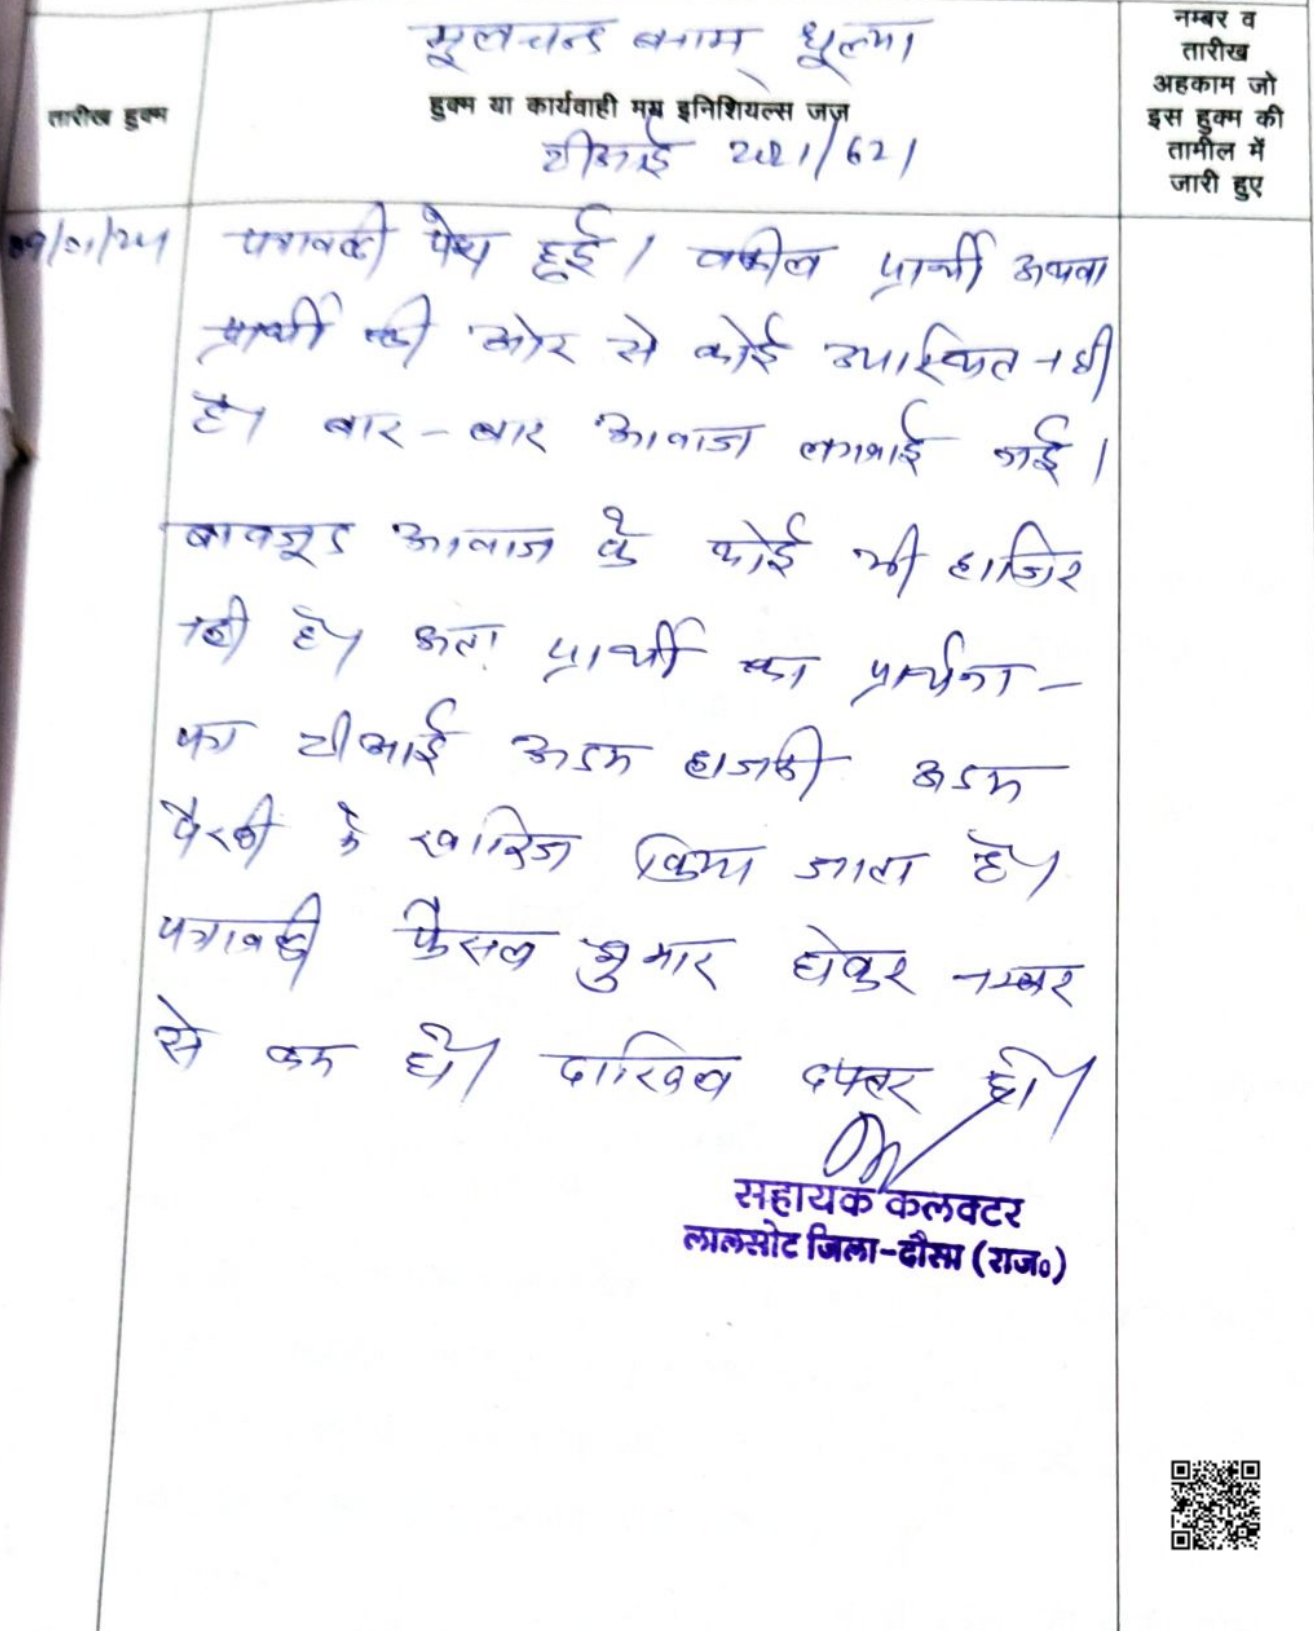 मूलचन्द बनाम धूल्या
तारीख हुक्म
हुक्म या कार्यवाही मय इनिशियल्स जज
नम्बर व
तारीख
अहकाम जो
इस हुक्म की
तामील में
जारी हुए
टीआई 2021/621
09/01/24
पत्रावली पेश हुई। वकील प्रार्थी अथवा
प्रार्थी की ओर से कोई उपस्थित नही
है। बार-बार आवाज लगवाई गई।
बावजूद आवाज के कोई भी हाजिर
नही है। अतः प्रार्थी का प्रार्थना-
पत्र टीआई अदम हाजरी अदम
पैरवी मे खारिज किया जाता है।
पत्रावली फैसल शुमार होकर नम्बर
से कम हो। दाखिल दफ्तर हो।
सहायक कलक्टर
लालसोट जिला-दौसा (राज०)